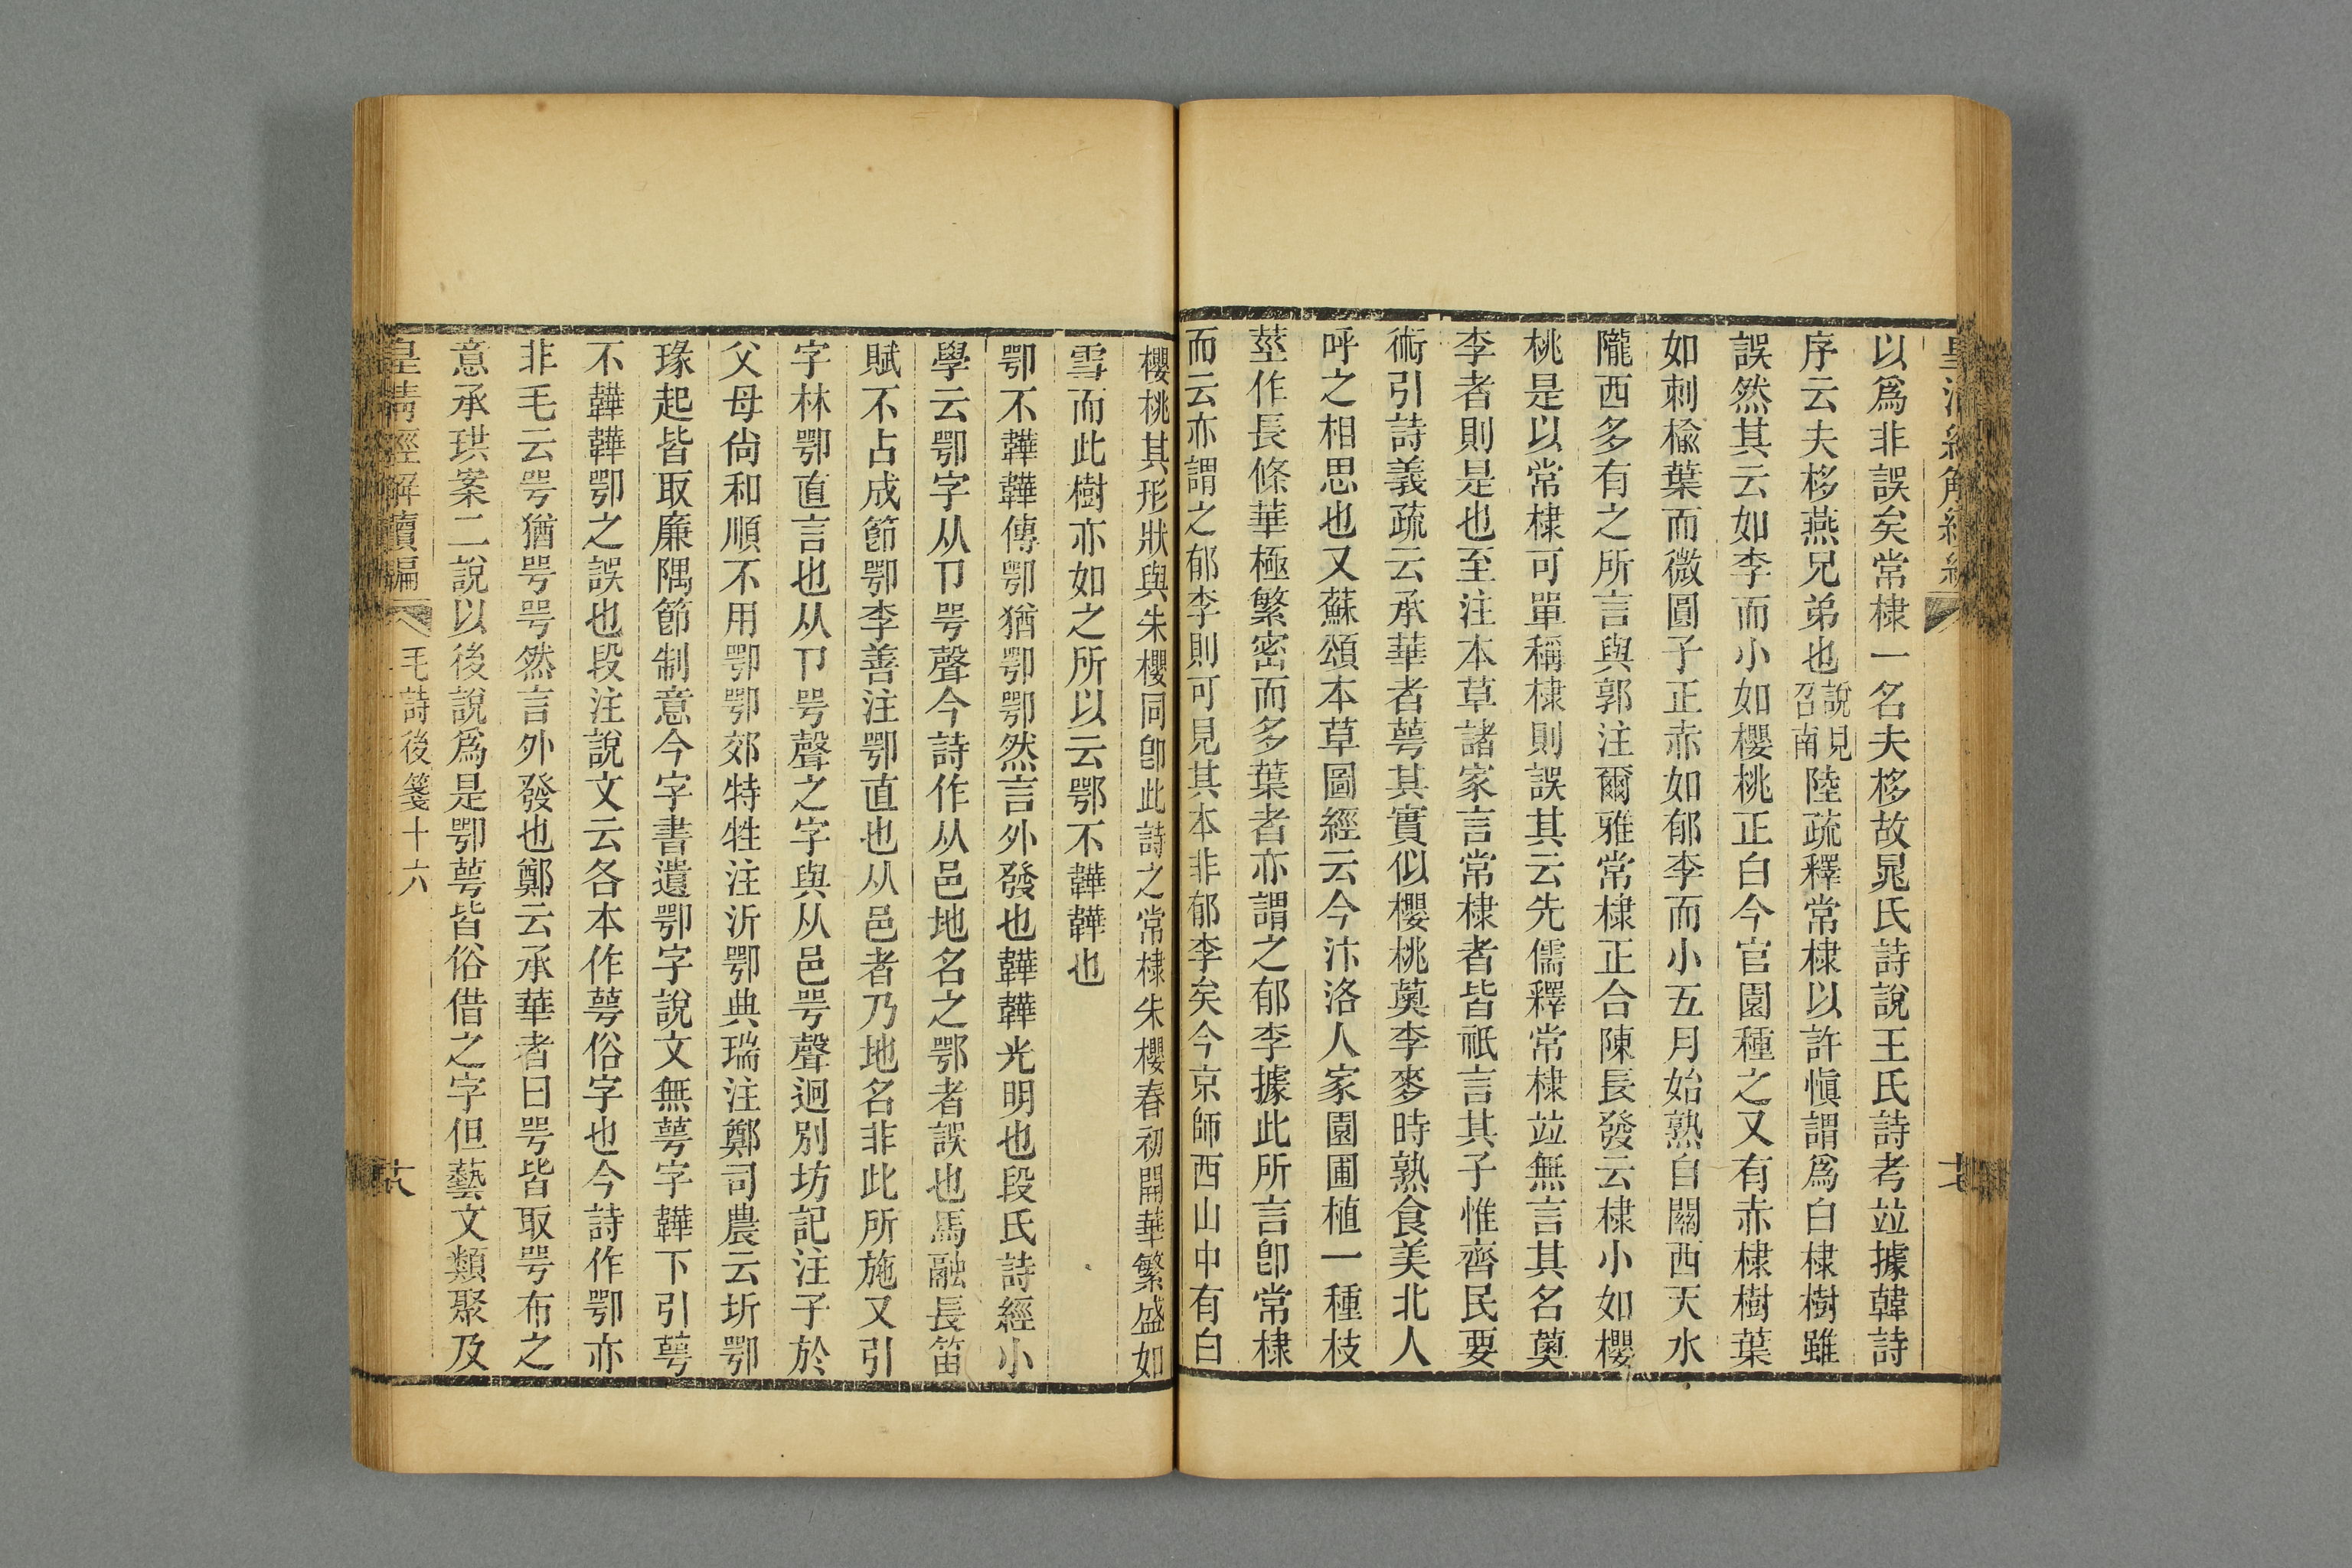 以爲非誤矣常棣一名夫栘故晁氏詩說王氏詩考竝據韓詩
序云夫栘燕兄弟也說見召南陸疏釋常棣以許愼謂爲白棣樹雖
誤然其云如李而小如櫻桃正白今官園種之又有赤棣樹葉
如刺楡葉而微圓子正赤如郁李而小五月始熟自關西天水
隴西多有之所言與郭注爾雅常棣正合陳長發云棣小如櫻
桃是以常棣可單稱棣則誤其云先儒釋常棣竝無言其名薁
李者則是也至注本草諸家言常棣者皆祇言其子惟齊民要
術引詩義疏云承華者萼其實似櫻桃薁李麥時熟食美北人
呼之相思也又蘇頌本草圖經云今汴洛人家園圃植一種枝
莖作長條華極繁密而多葉者亦謂之郁李據此所言卽常棣
而云亦謂之郁李則可見其本非郁李矣今京師西山中有白
櫻桃其形狀與朱櫻同卽此詩之常棣朱櫻春初開華繁盛如
雪而此樹亦如之所以云鄂不韡韡也
卾不韡韡傳卾猶卾卾然言外發也韡韡光明也段氏詩經小
學云卾字从卩咢聲今詩作从邑地名之鄂者誤也馬融長笛
賦不占成節卾李善注卾直也从邑者乃地名非此所施又引
字林卾直言也从卩咢聲之字與从邑咢聲迥別坊記注子於
父母尙和順不用卾卾郊特牲注沂卾典瑞注鄭司農云圻卾
瑑起皆取廉隅節制意今字書遺卾字說文無萼字韡下引萼
不韡韡卾之誤也段注說文云各本作萼俗字也今詩作卾亦
非毛云咢猶咢咢然言外發也鄭云承華者曰咢皆取咢布之
意承珙案二說以後說爲是卾萼皆俗借之字但藝文類聚及
皇淸經解續編
毛詩後箋十六